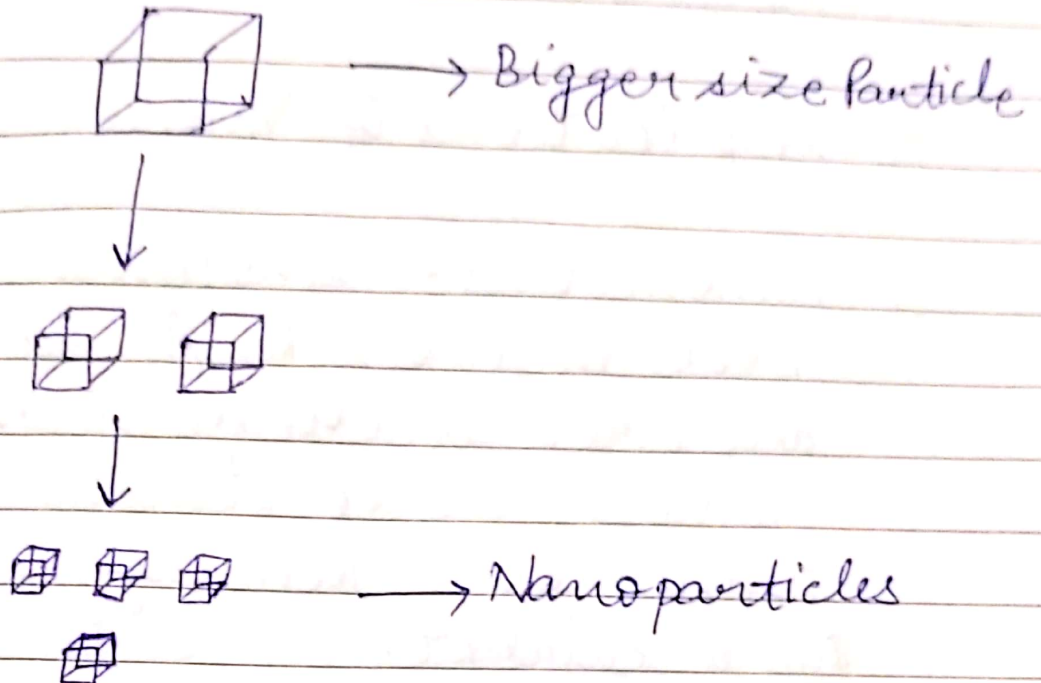 Bigger size Particle
Nanoparticles